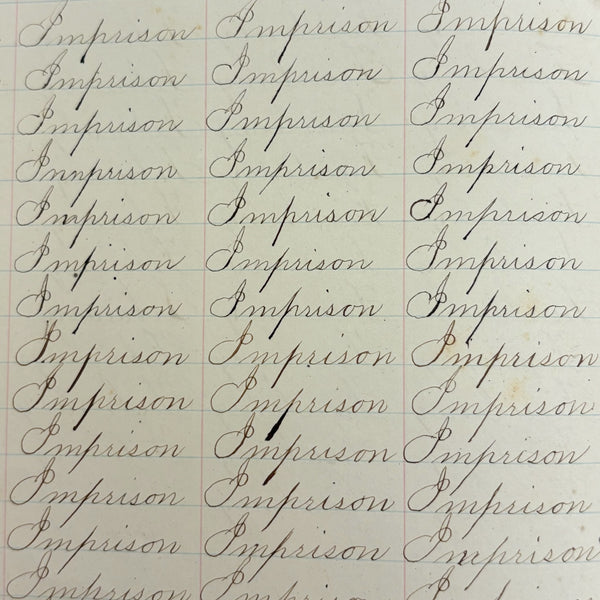 Imprison Imprison Imprison
Imprison Imprison Imprison
Imprison Imprison Imprison
Innprison Imprison Imprison
Imprison Imprison Imprison
Imprison Imprison Imprison
Imprison Imprison Imprison
Imprison Imprison Imprison
Imprison Imprison Imprison
Imprison Imprison Imprison
Imprison Imprison Imprison
Imprison Imprison Imprison
Imprison Imprison